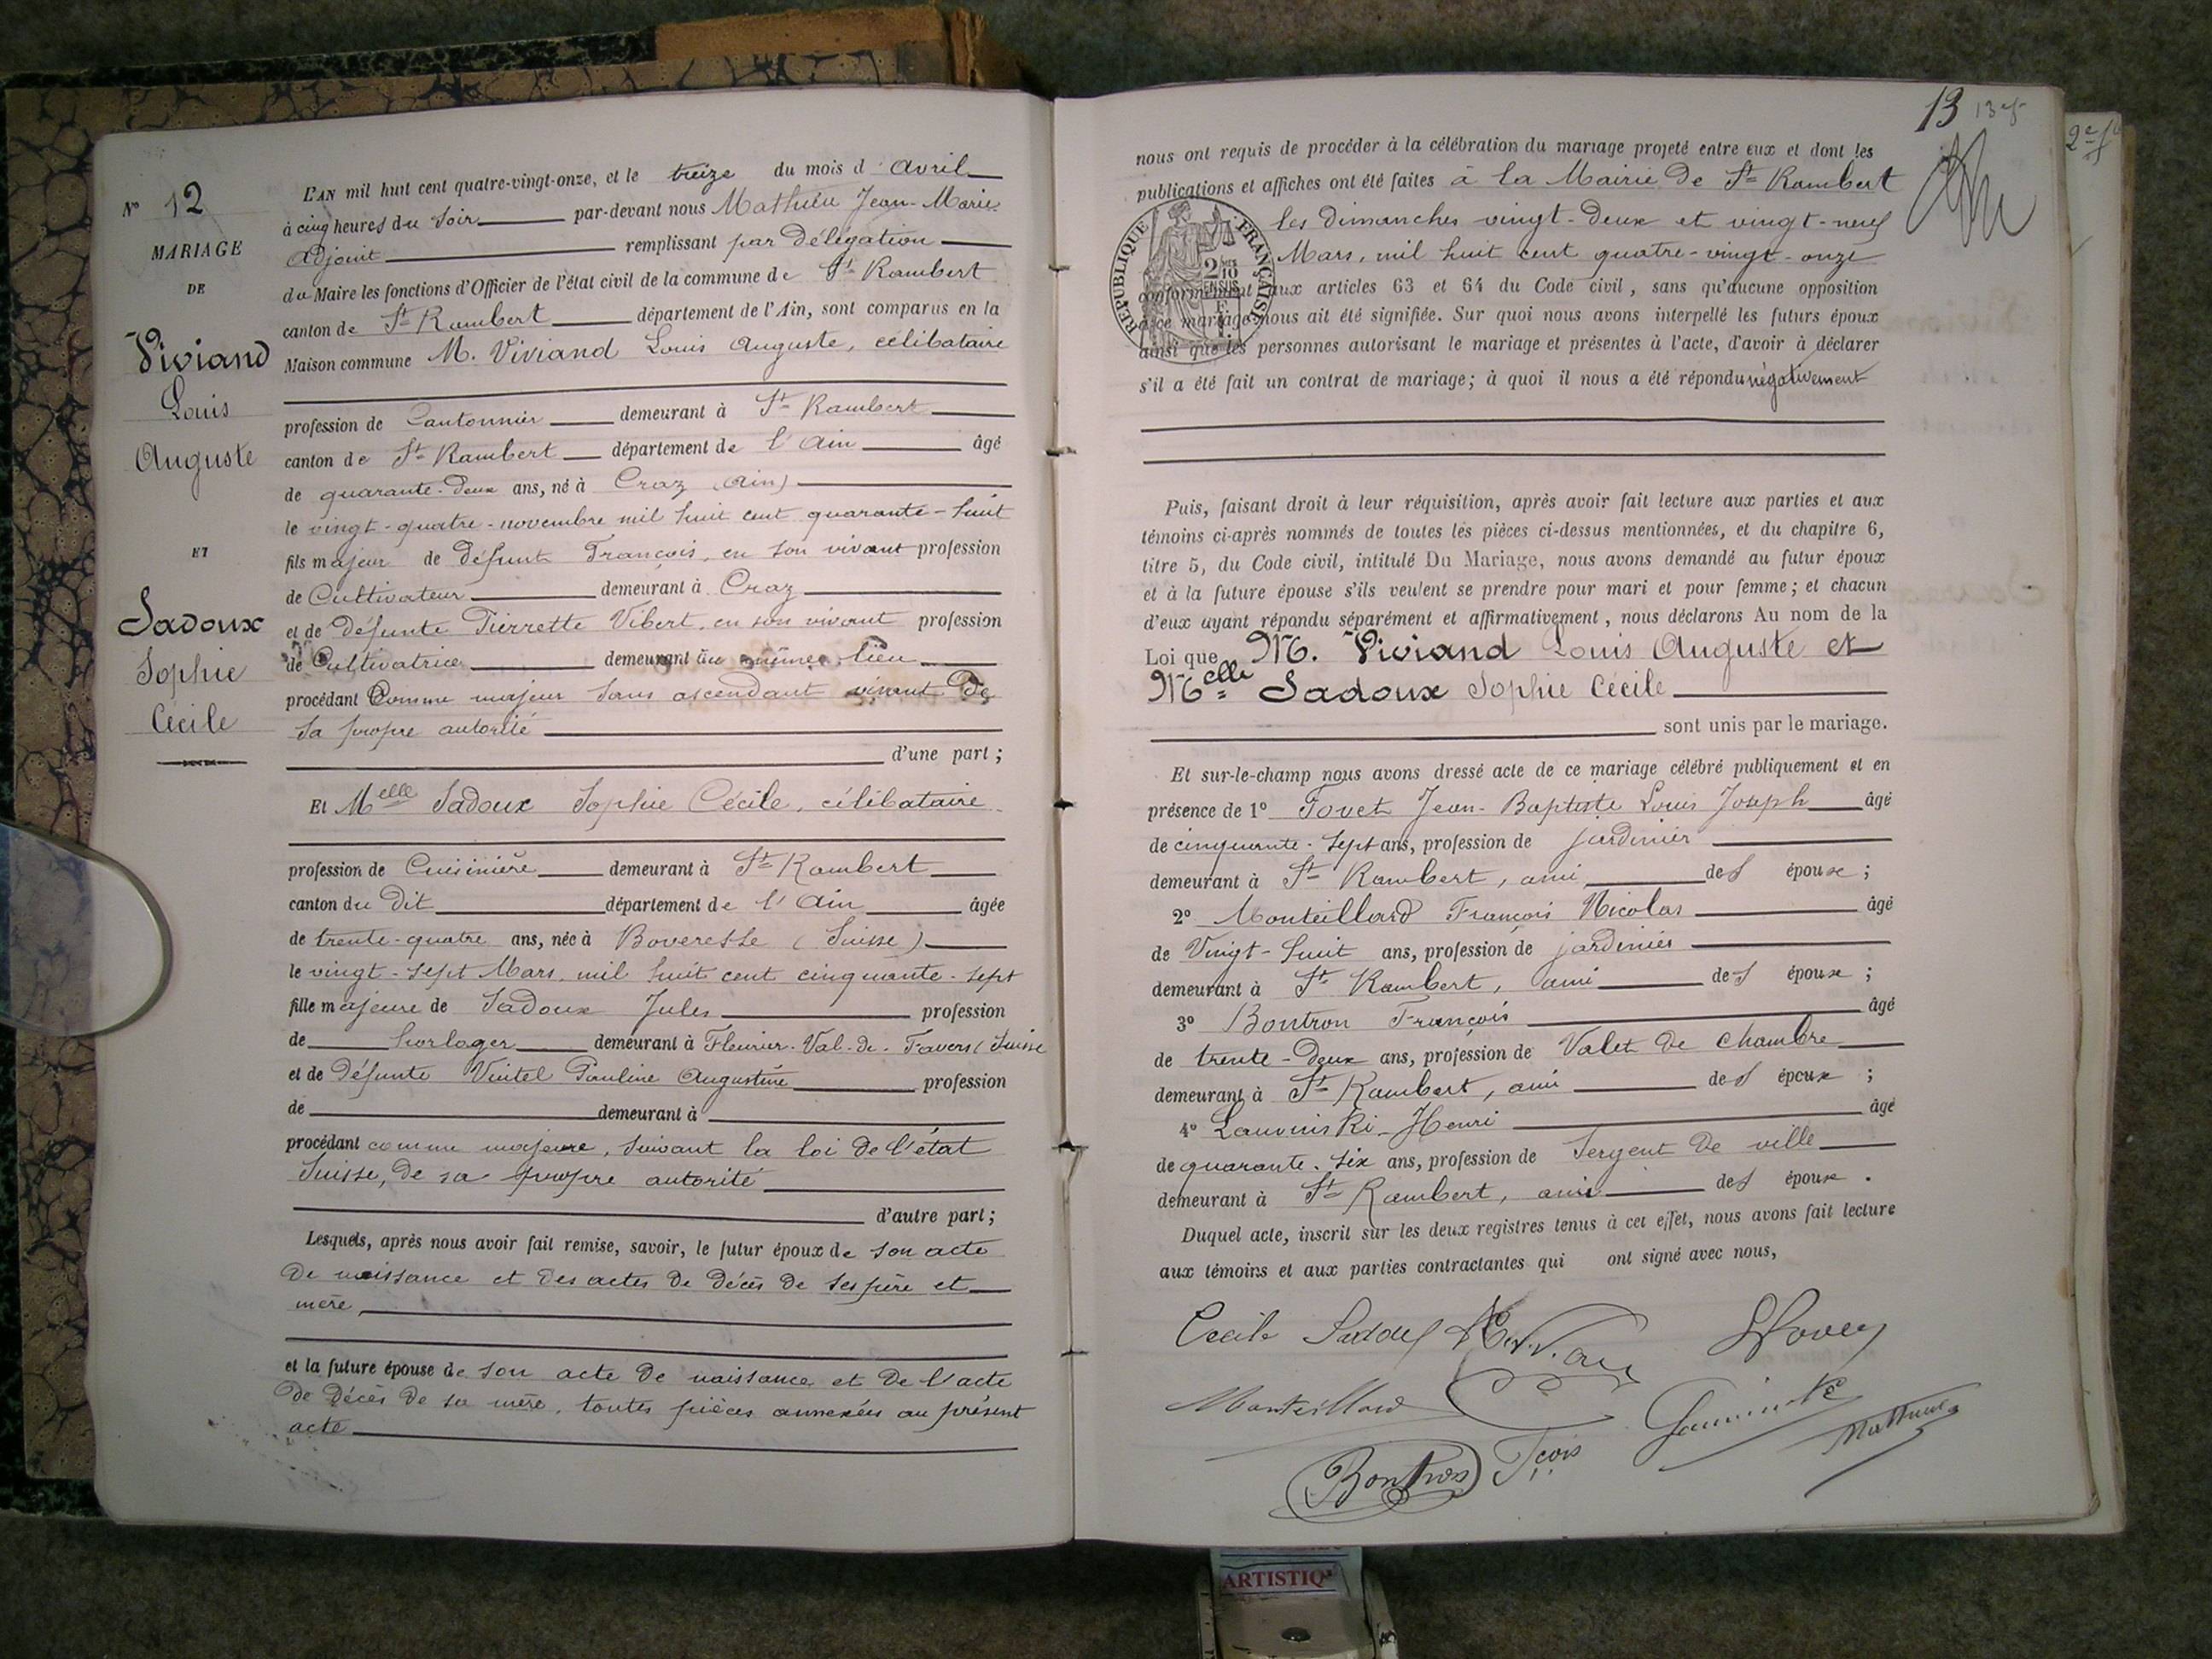 N° 12
MARIAGE
DE
Viviand
Louis
Auguste
ET
Sadoux
Sophie
Cécile
L'AN mil huit cent quatre-vingt-onze, et le treize du mois d'Avril
à cinq heures du soir par-devant nous Mathieu Jean-Marie
Adjoint remplissant par délégation
du Maire les fonctions d'Officier de l'état civil de la commune de St Rambert
canton de St Rambert département de l'Ain, sont comparus en la
Maison commune M. Viviand Louis Auguste, célibataire
profession de Cantonnier demeurant à St Rambert
canton de St Rambert département de l'Ain âgé
de quarante-deux ans, né à Craz (Ain)
le vingt-quatre-novembre mil huit cent quarante-huit
fils majeur de défunt François, en son vivant profession
de Cultivateur demeurant à Craz
et de défunte Pierrette Vibert, en son vivant profession
de Cultivatrice demeurant au même lieu
procédant comme majeur sans ascendant vivant de
sa propre autorité
d'une part;
Et Melle Sadoux Sophie Cécile, célibataire
profession de Cuisinière demeurant à St Rambert
canton du dit département de l'Ain âgée
de trente-quatre ans, née à Boveresse (Suisse)
le vingt-sept Mars, mil huit cent cinquante-sept
fille majeure de Sadoux Jules profession
de horloger demeurant à Fleurier-Val-de-Travers (Suisse
et de défunte Pauline Augustine profession
de demeurant à
procédant comme majeure, suivant la loi de l'état
Suisse, de sa propre autorité
d'autre part;
Lesquels, après nous avoir fait remise, savoir, le futur époux de son acte
de naissance et des actes de décès de ses père et
mère,
et la future épouse de son acte de naissance et de l'acte
de décès de sa mère, toutes pièces annexées au présent
acte
13 13 f
2e f
nous ont requis de procéder à la célébration du mariage projeté entre eux et dont les
publications et affiches ont été faites à la Mairie de St Rambert
les dimanches vingt-deux et vingt-neuf
Mars, mil huit cent quatre-vingt-onze
RÉPUBLIQUE FRANÇAISE
2/10 EN SUS
conformément aux articles 63 et 64 du Code civil, sans qu'aucune opposition
à ce mariage nous ait été signifiée. Sur quoi nous avons interpellé les futurs époux
ainsi que les personnes autorisant le mariage et présentes à l'acte, d'avoir à déclarer
s'il a été fait un contrat de mariage; à quoi il nous a été répondu négativement
Puis, faisant droit à leur réquisition, après avoir fait lecture aux parties et aux
témoins ci-après nommés de toutes les pièces ci-dessus mentionnées, et du chapitre 6,
titre 5, du Code civil, intitulé Du Mariage, nous avons demandé au futur époux
et à la future épouse s'ils veulent se prendre pour mari et pour femme; et chacun
d'eux ayant répondu séparément et affirmativement, nous déclarons Au nom de la
Loi que M. Viviand Louis Auguste et
Melle Sadoux Sophie Cécile
sont unis par le mariage.
Et sur-le-champ nous avons dressé acte de ce mariage célébré publiquement et en
présence de 1° Jean-Baptiste Louis Joseph âgé
de cinquante-sept ans, profession de jardinier
demeurant à St Rambert, ami des époux;
2° Monteillard François Nicolas âgé
de Vingt-huit ans, profession de jardinier
demeurant à St Rambert, ami des époux;
3° Bontron François âgé
de trente-deux ans, profession de Valet de chambre
demeurant à St Rambert, ami des époux;
4° Henri âgé
de quarante-six ans, profession de Sergent de ville
demeurant à St Rambert, ami des époux.
Duquel acte, inscrit sur les deux registres tenus à cet effet, nous avons fait lecture
aux témoins et aux parties contractantes qui ont signé avec nous,
Cecile Sadoux
Monteillard
Bontron Fçois
Mathieu
ARTISTIQ